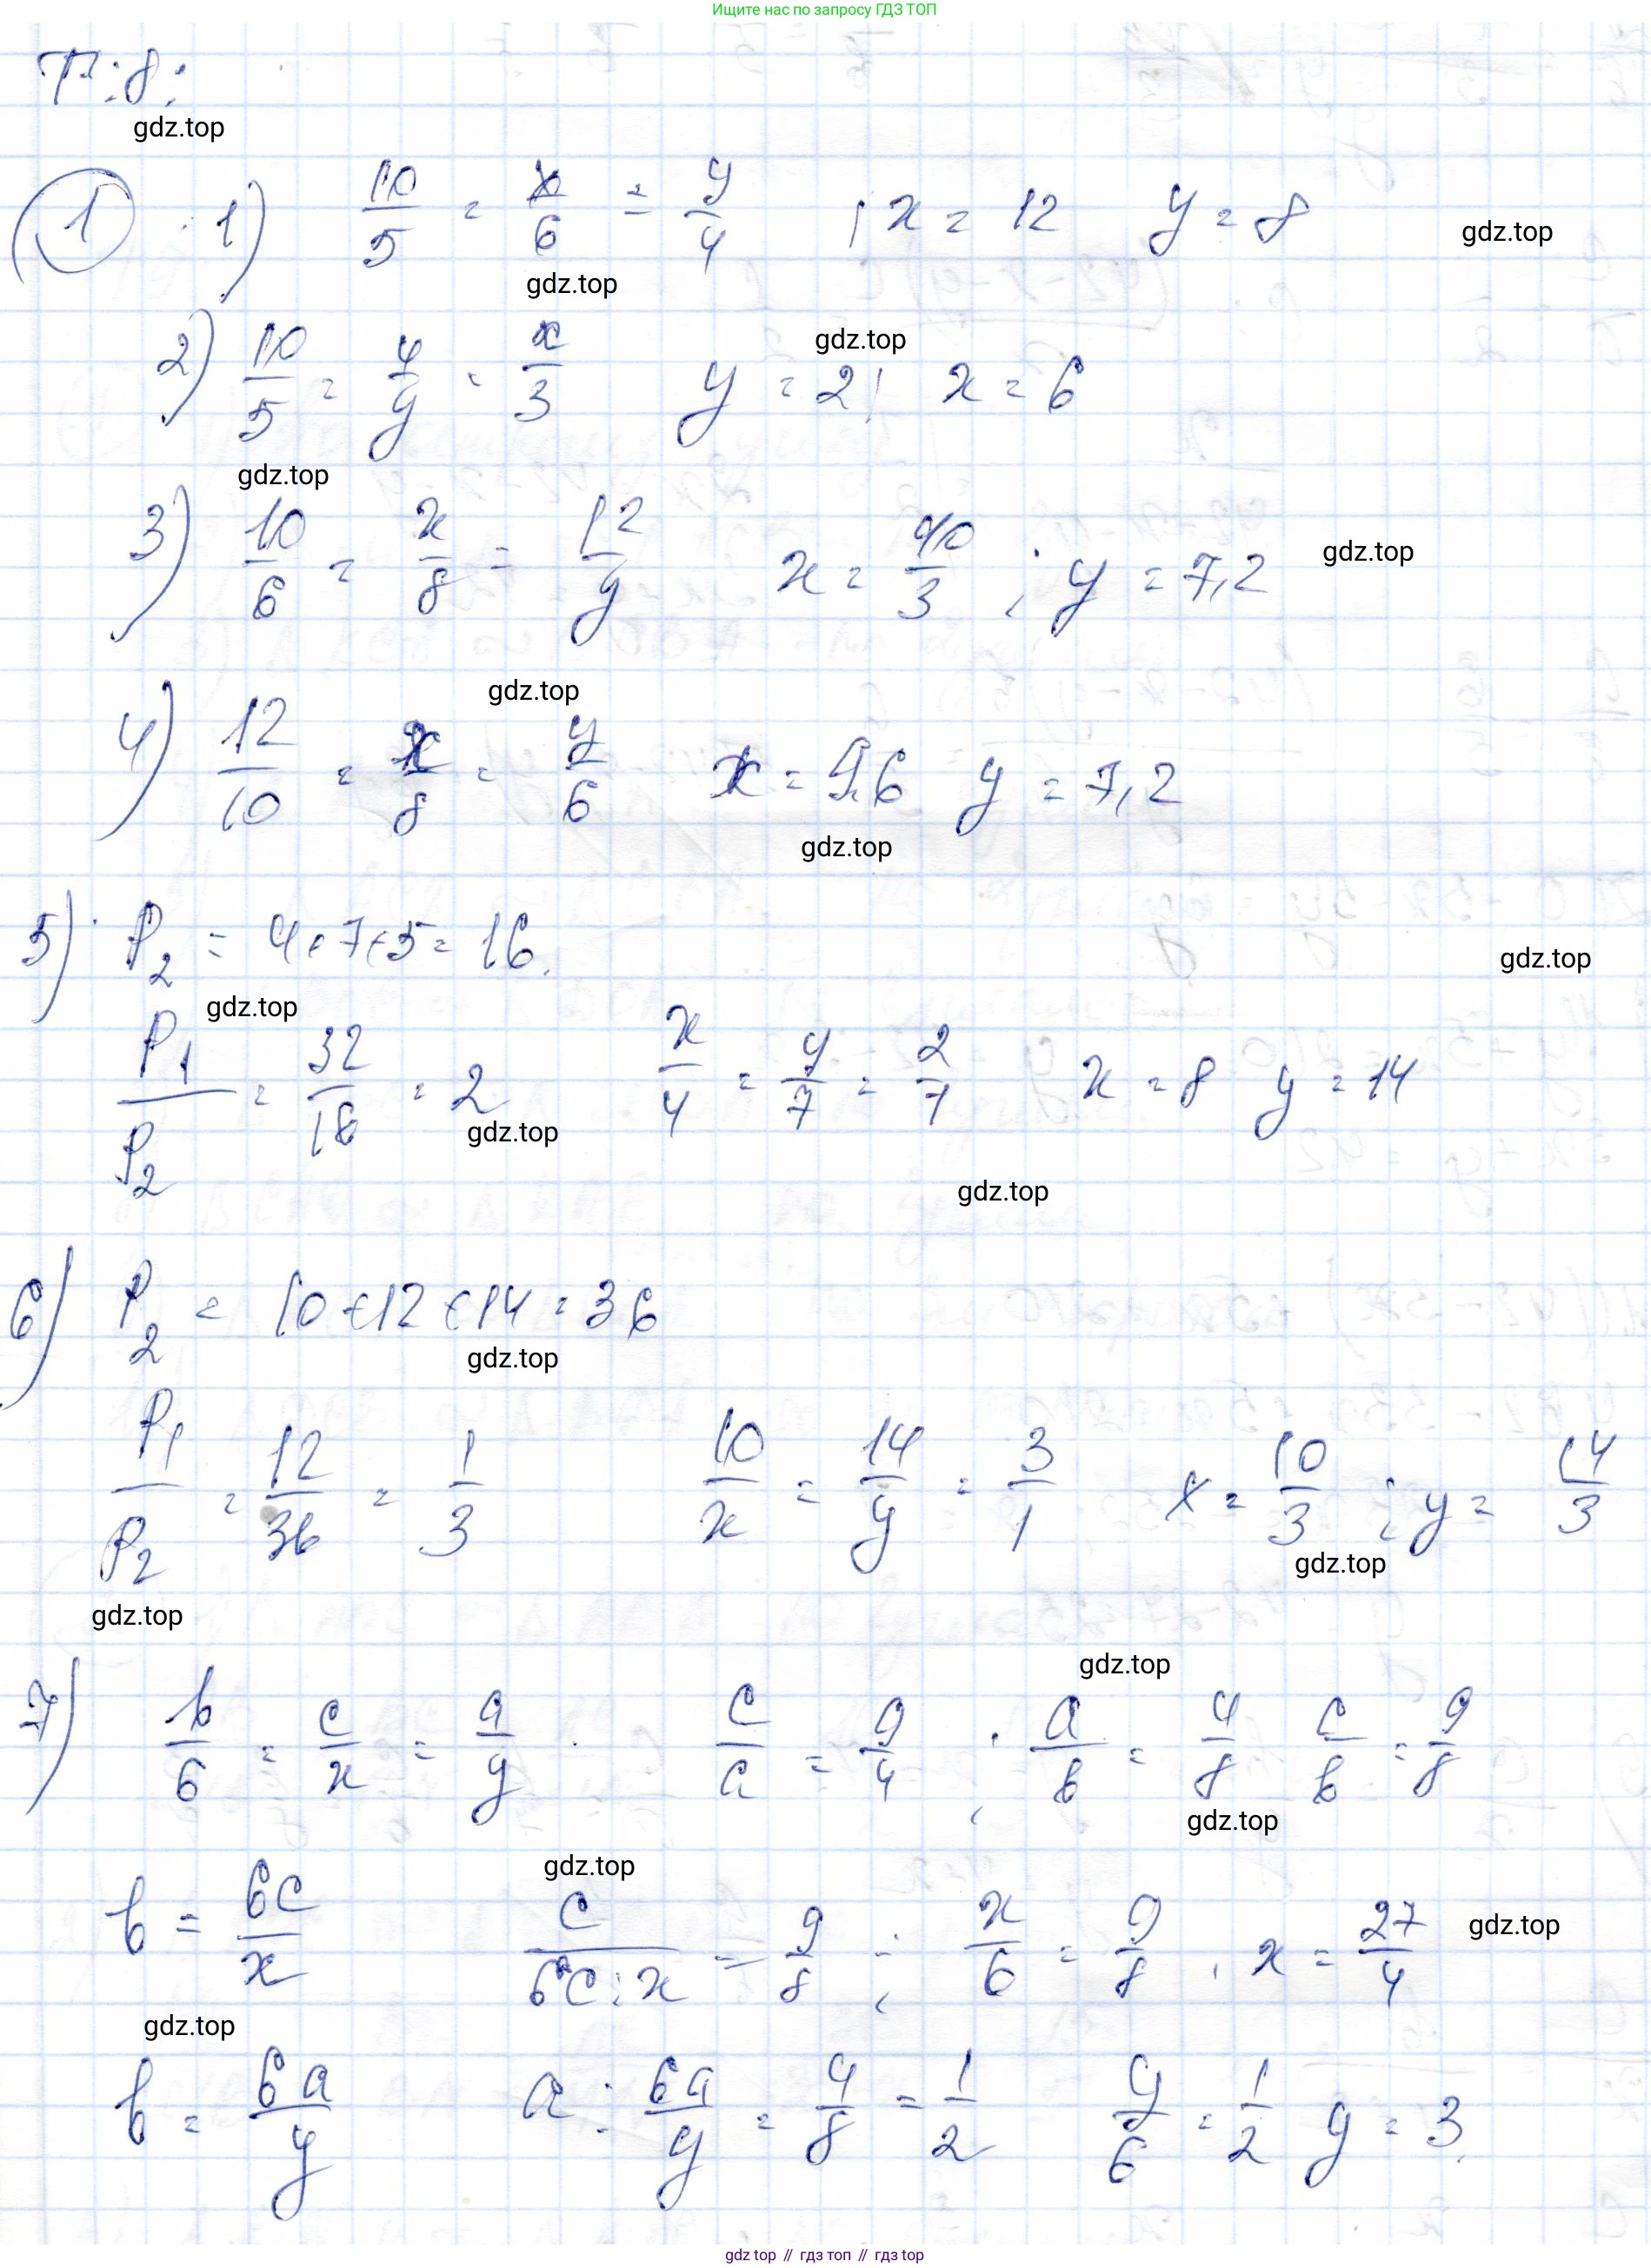 Ищите нас по запросу ГДЗ ТОП
П.8.
gdz.top
1 1) 10/5 = x/6 = y/4 ; x = 12 y = 8
gdz.top
gdz.top
2) 10/5 = 4/y = x/3 y = 2; x = 6
gdz.top
gdz.top
3) 10/6 = x/8 = 12/y x = 40/3 ; y = 7,2
gdz.top
gdz.top
4) 12/10 = x/8 = y/6 x = 9,6 y = 7,2
gdz.top
5) P2 = 4+7+5 = 16.
gdz.top
gdz.top
P1/P2 = 32/16 = 2 x/4 = y/7 = 2/1 x = 8 y = 14
gdz.top
gdz.top
6) P2 = 10+12+14 = 36
gdz.top
P1/P2 = 12/36 = 1/3 10/x = 14/y = 3/1 x = 10/3 ; y = 14/3
gdz.top
gdz.top
gdz.top
7) b/6 = c/x = a/y c/a = 9/4 ; a/b = 4/8 c/b = 9/8
gdz.top
gdz.top
b = 6c/x c/6c:x = 9/8 ; x/6 = 9/8 , x = 27/4
gdz.top
gdz.top
b = 6a/y a : 6a/y = 4/8 = 1/2 y/6 = 1/2 y = 3.
gdz top // гдз топ // гдз top